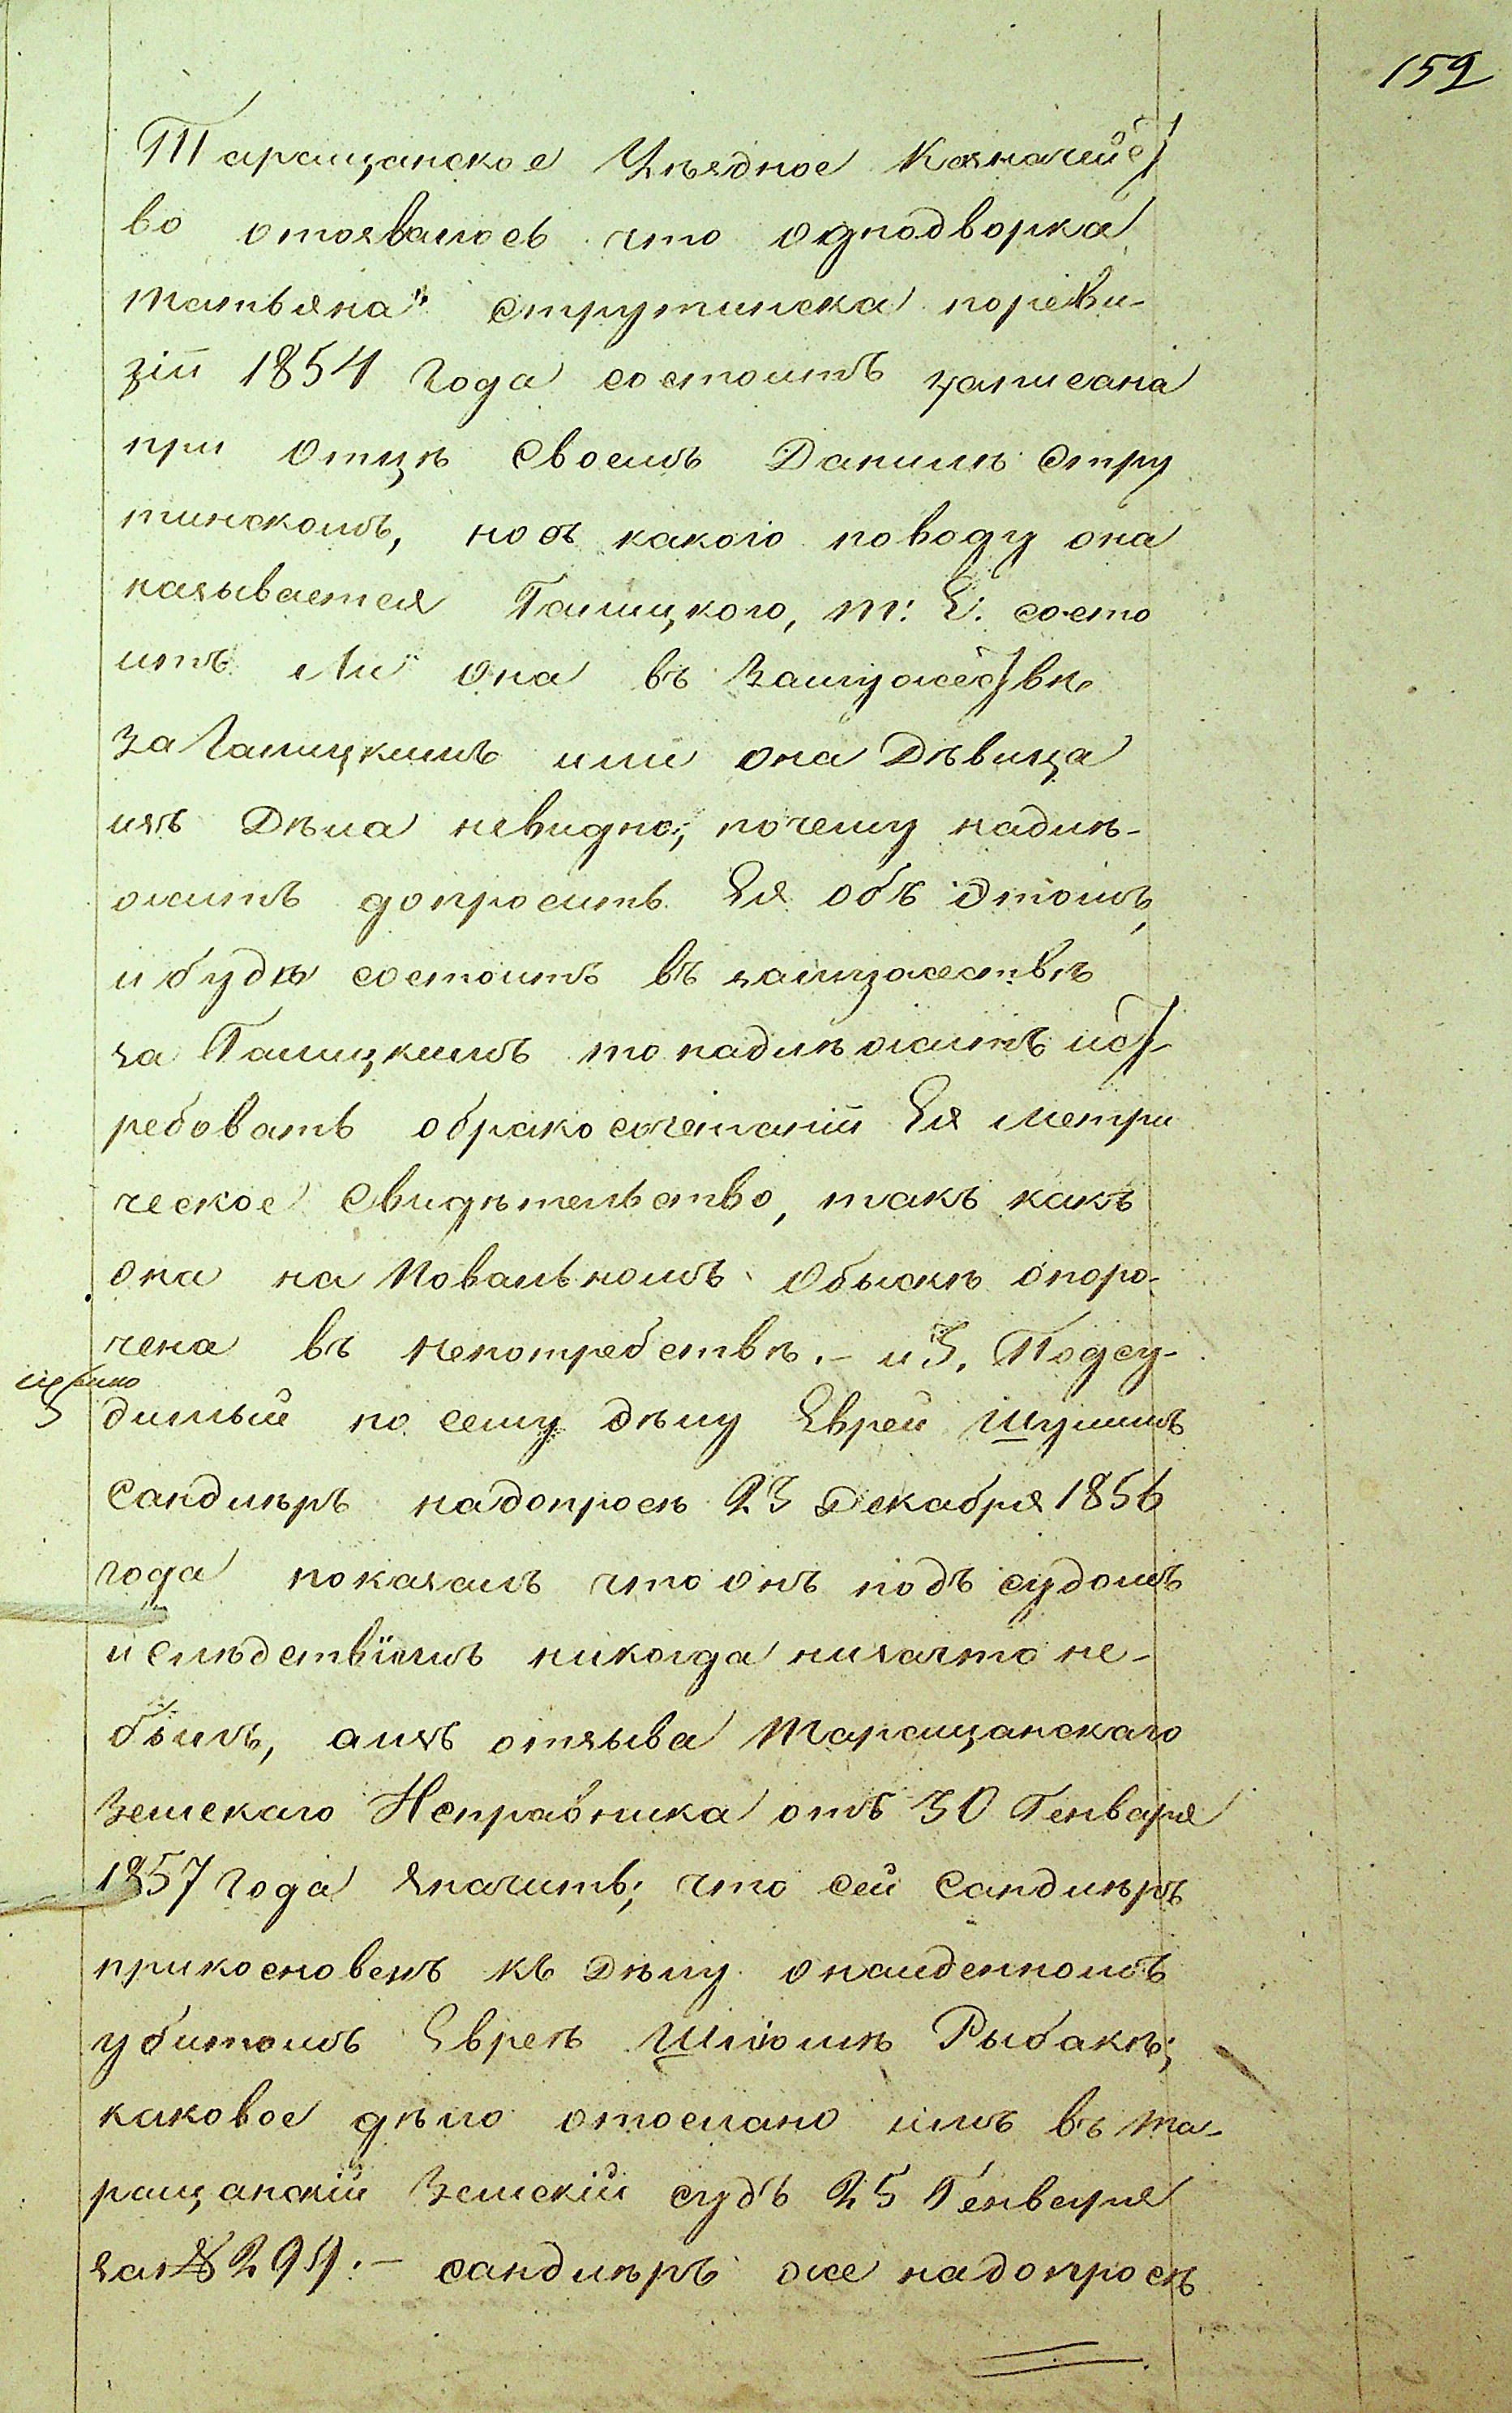 152
Таращанское Уѣздное Казначейст
во отозвалось что однодворка
Татьяна Струтинска поревѝ-
зіи 1854 года состоитъ записана
при Отцѣ Своемъ Данилѣ Стру
тинскомъ, носъ какого поводу она
называется Галицкого, т: Е: состо
итъ ли она въ Замужествѣ
за Галицкимъ или она Дѣвица
изъ Дѣла невидно; почему надлѣ-
житъ допросить Ея объ Этомъ,
и будѣ состоитъ въ замужествѣ
за Галицкимъ то надлѣжитъ ист-
ребовать обракосочетаніи Ея Метри
ческое Свидѣтельство, такъ какъ
она на Повальномъ Обыскѣ опоро-
чена въ Непотребствѣ.- и 3. Подсу-
димый по сему дѣлу Еврей Шулимъ
Сандлѣръ надопросѣ 23 Декабря 1856
года показалъ что онъ подъ судомъ
и Слѣдствіемъ никогда низачто не-
былъ, аизъ отзыва Таращанскаго
Земскаго Исправника отъ 30 Генваря
1857 года Значитъ; что сей Сандлѣръ
прикосновенъ къ Дѣлу онайденномъ
убитомъ Евреѣ Шлюмѣ Рыбакѣ;
каковое дѣло отослано имъ въ Та-
ращанскій Земскій судъ 25 Генваря
за № 294.- Сандлѣръ же надопросѣ